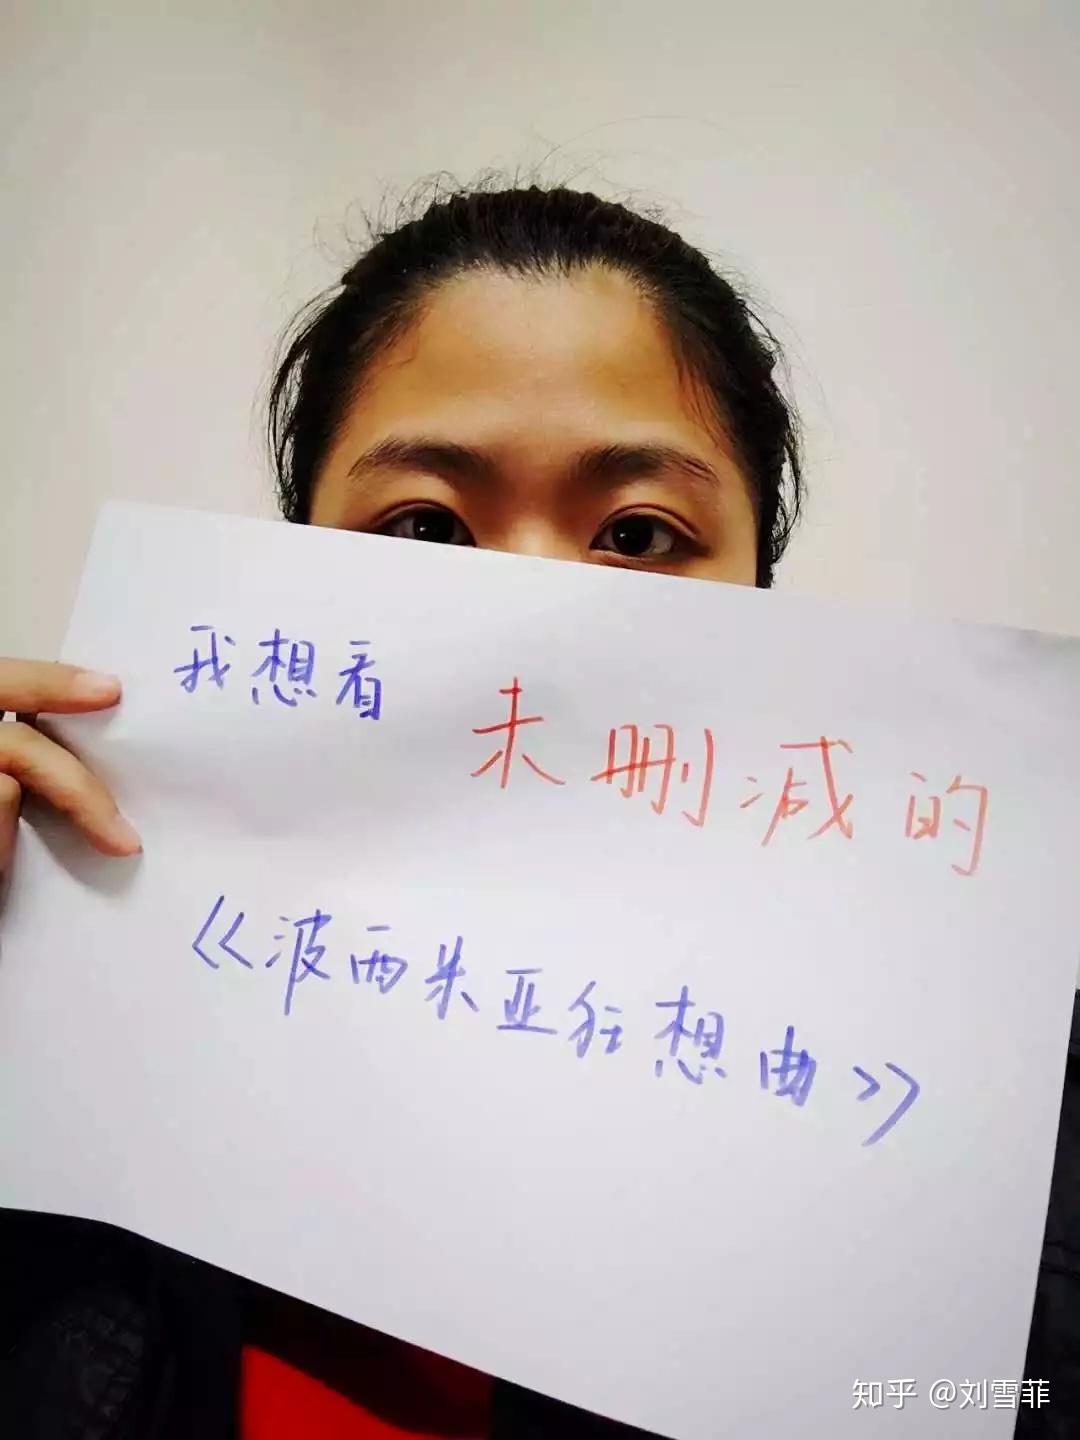 我想看 未删减的
《波西米亚狂想曲》
知乎 @刘雪菲